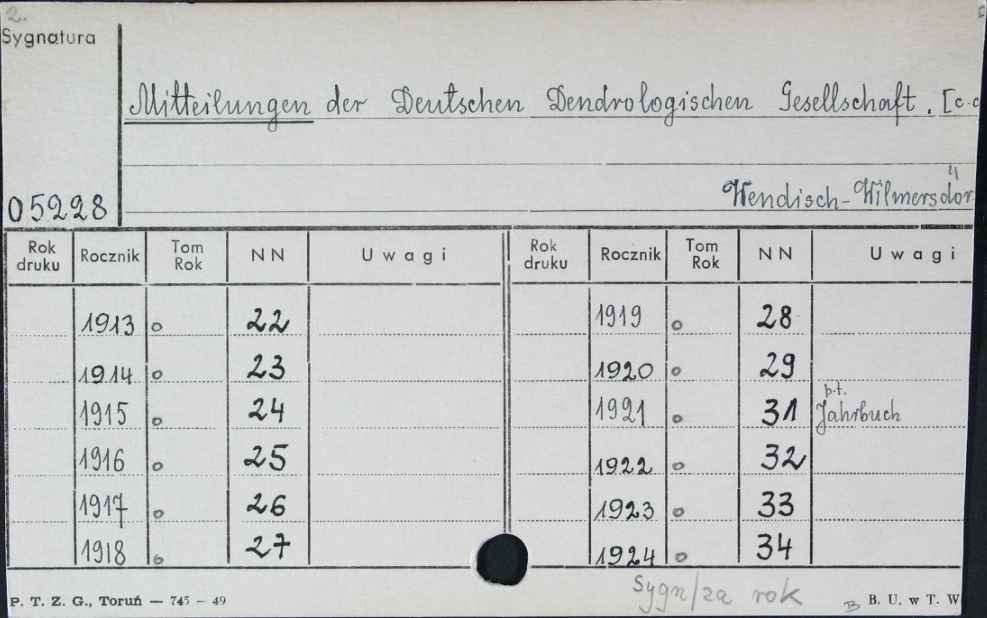 2.
Sygnatura
Mitteilungen der Deutschen Dendrologischen Gesellschaft. [c.d
Wendisch-Wilmersdor
05228
Rok druku Rocznik Tom Rok NN Uwagi Rok druku Rocznik Tom Rok NN Uwagi
1913 o 22 1919 o 28
1914 o 23 1920 o 29
1915 o 24 1921 o 31 p.t. Jahrbuch
1916 o 25 1922 o 32
1917 o 26 1923 o 33
1918 o 27 1924 o 34
Sygn/za rok
P. T. Z. G., Toruń — 745 – 49 B B. U. w T. W